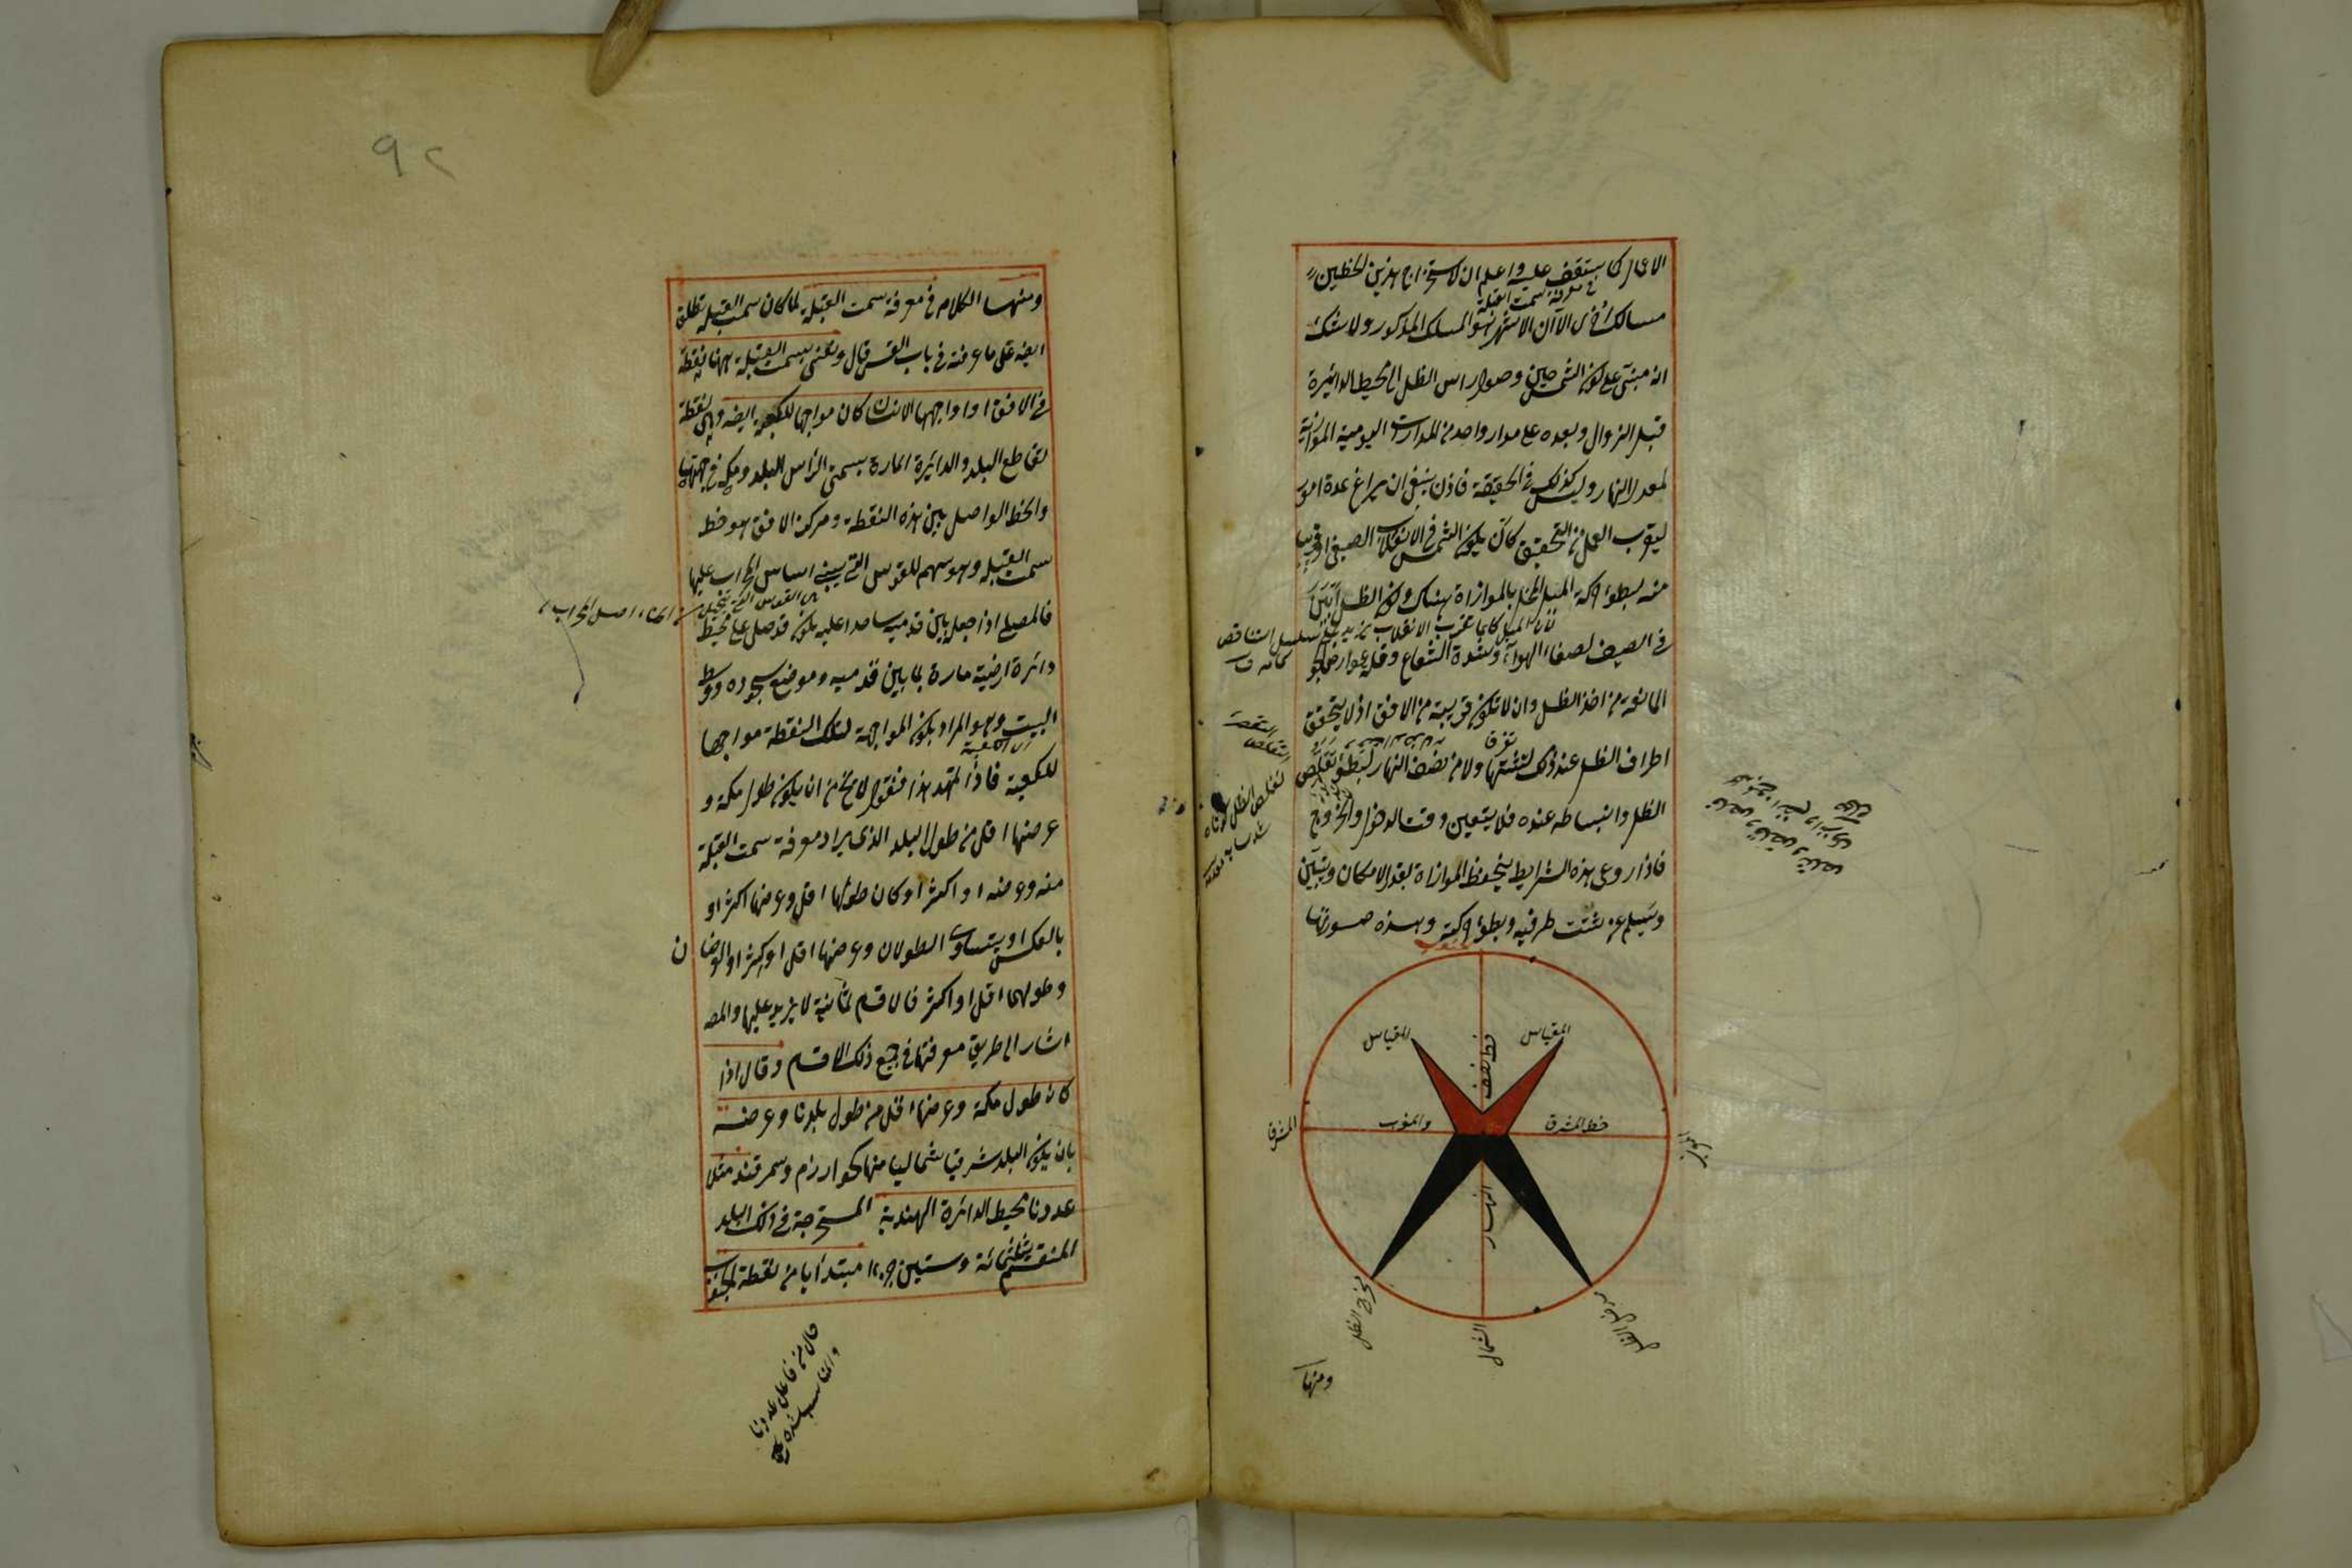 الاعمال كما ستقف عليه واعلم ان لاستخراج هذين الخطين
في معرفة سمت القبلة
مسالك اخرى الا ان الاشهر هو المسلك المذكور ولا شك
انه مبني على كون الشمس حين وصول راس الظل الى محيط الدائرة
قبل الزوال وبعده على مدار واحد من المدارات اليومية الموازية
لمعدل النهار وليس كذلك في الحقيقة فاذن ينبغي ان يراعى عدة امور
ليقرب العمل من التحقيق كأن يكون الشمس في الانقلاب الصيفي او قريب
منه لبطؤ حركة الميل المخل بالموازاة هناك وكون الظل ابين
لان الميل كلما قرب الانقلاب تزيد على سبيل التناقص
في الصيف لصفاء الهواء وشدة الشعاع وقلة عوارض الجو
المانعة من اخذ الظل وان لا تكون قريبة من الافق اذ لا يتحقق
تفرق
اطراف الظل عند ذلك لتشتتها ولا من نصف النهار لبطؤ تقلص
الظل وانبساطه عنده فلا يتعين وقت الدخول والخروج
فاذا روعي هذه الشرايط ينحفظ الموازاة بقدر الامكان ويتبين
ويسلم عن تشتت طرفيه وبطؤ حركته وهذه صورتها
الجنوب
المقياس
المقياس
خط نصف
خط المشرق
والمغرب
المشرق
المغرب
النهار
مدخل الظل
مخرج الظل
الشمال
ومنها
٩٢
ومنها الكلام في معرفة سمت القبلة لما كان سمت القبلة تطلق
ايضه على ما عرفته في باب القسي قال ونعني بسمت القبلة ههنا نقطة
في الافق اذا واجهها الانسان كان مواجها للكعبة ايضه وهي نقطة
تقاطع البلد والدائرة المارة بسمتي الراس للبلد ومكة في جهتها
والخط الواصل بين هذه النقطة ومركز الافق هو خط
سمت القبلة وهو سهم للقوس التي يبنى اساس المحراب عليها
فالمصلي اذا جعل بين قدميه ساجدا عليه يكون قد صلى على محيط
دائرة ارضية مارة بما بين قدميه وموضع سجوده ووسط
البيت وهو المراد بكون المواجهة لتلك النقطة مواجها
اي الكعبة
للكعبة فاذا تمهد هذا فنقول لا يخ من ان يكون طول مكة و
عرضها اقل من طول البلد الذي يراد معرفة سمت القبلة
منه وعرضه او اكثر او كان طولها اقل وعرضها اكثر او
بالعكس او يتساوى الطولان وعرضها اقل او اكثر او العرضان
وطولها اقل او اكثر فالاقسام ثمانية لا يزيد عليها والمصه
اشار الى طريق معرفتها في جميع ذلك الاقسام وقال اذا
كان طول مكة وعرضها اقل من طول بلدنا وعرضه
بان يكون البلد شرقيا شماليا منها كخوارزم وسمرقند مثلا
عددنا محيط الدائرة الهندية المستخرجة في ذلك البلد
المنقسم بثلثمائة وستين جزءا مبتدأ بها من نقطة الجنوب
حال من فاعل عددنا